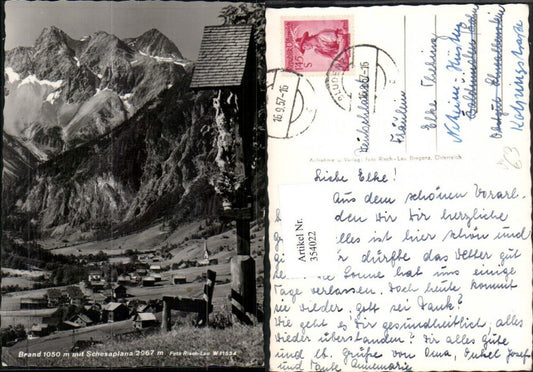 Brand 1050 m mit Schesaplana 2967 m Foto Risch-Lau W 11534
16.9.57-16
BLUDE
57-16
1.45
Deutschland
Fräulein
Elke
Kolpingstraße
63
Aufnahme u. Verlag: Foto Risch-Lau, Bregenz, Österreich
Artikel Nr.
354022
Liebe Elke!
Aus dem schönen Vorarl-
den wir Dir herzliche
alles ist hier schön und
dürfte das Wetter gut
Sonne hat uns einige
Tage verlassen. Doch heute kommt
sie wieder, gott sei Dank!
Wie geht es Dir gesundheitlich, alles
wieder überstanden? Dir alles gute
und lb. Grüße von Oma, Onkel Josef
und Tante Annemarie